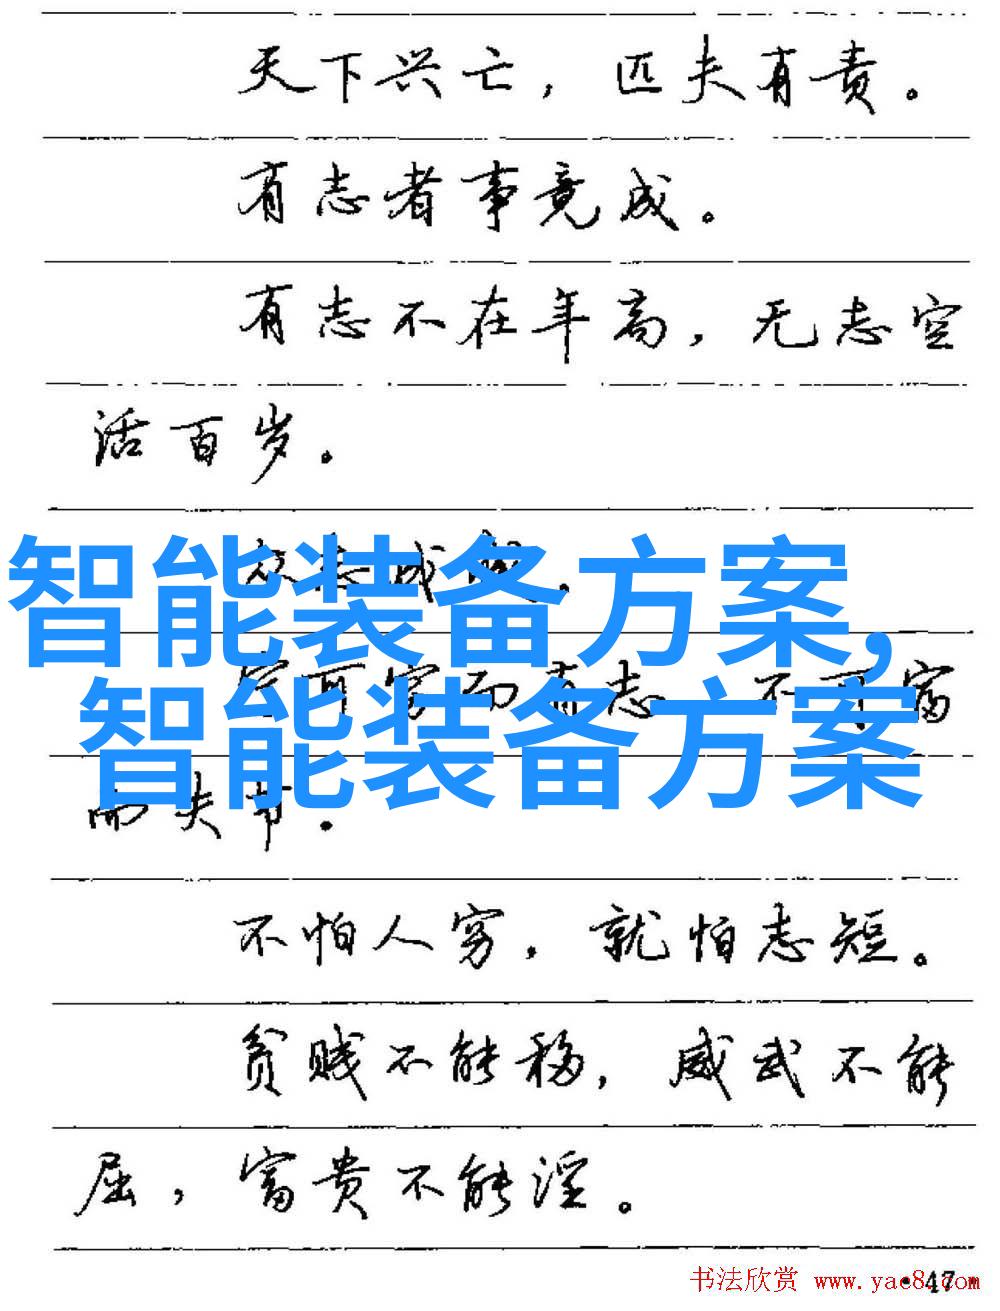 天下兴亡，匹夫有责。
有志者事竟成。
有志不在年高，无志空
活百岁。
智能装备方案,
智能装备方案
而失节.
不怕人穷，就怕志短。
贫贱不能移，威武不能
屈，富贵不能淫。
书法欣赏 www.yac8.com
·47·